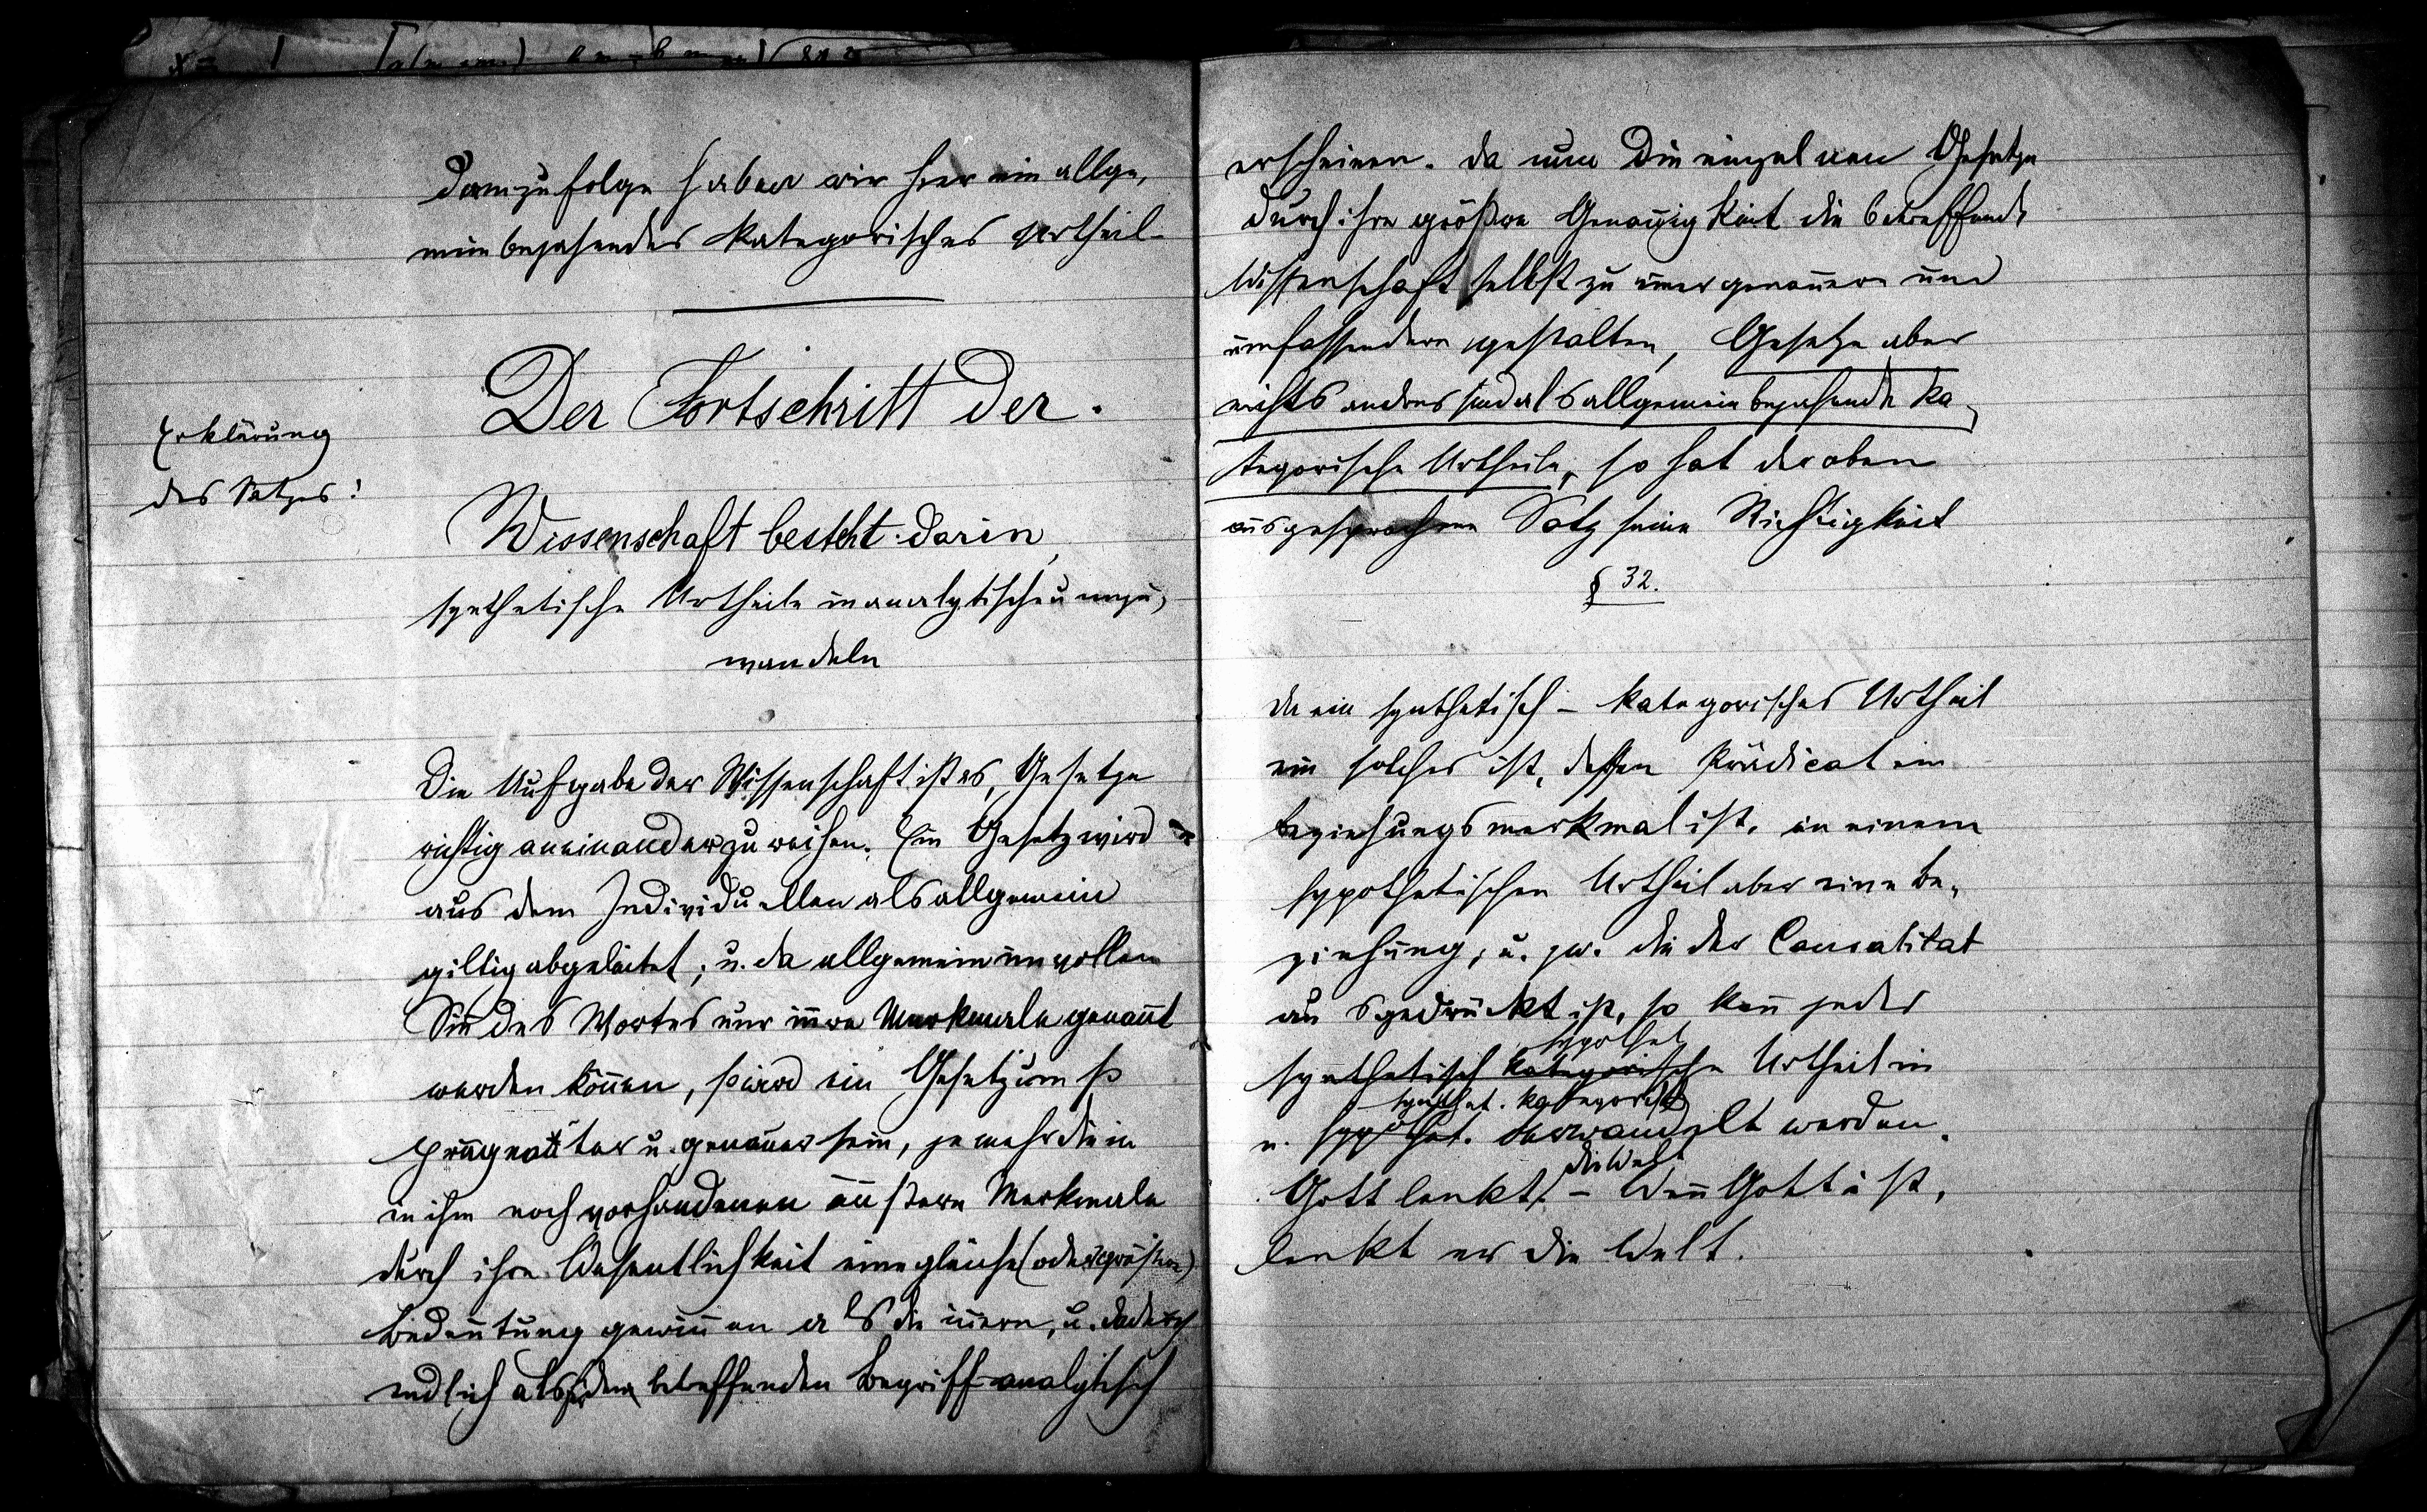 Demzufolge haben wir hier ein allge,
mein bejahendes kategorisches Urtheil
Der Fortschritt der.
Erklärung
des Satzes!
Wissenschaft besteht darin,
synthetische Urtheile in analytische umzu,
wandeln
Die Aufgabe der Wissenschaft ist es, Gesetze
richtig aneinander zu reihen. Ein Gesetz wird
aus dem Individuellen als allgemein
giltig abgeleitet; u. da allgemein im vollen
Sinn des Wortes nur innre Merkmale genannt
werden können, wird ein Gesetz um so
prägnanter u. genauer sein, je mehr die in
in ihm noch vorhandenen äußern Merkmale
durch ihre Wesentlichkeit eine gleiche (oder größere)
Bedeutung gewinnen als die innern, u. dadurch
endlich als für den betreffenden Begriff analytisch
erscheinen. Da nun die einzelnen Gesetze
durch ihre größere Genauigkeit die betreffende
Wissenschaft selbst zu einer genauern und
umfassendern gestalten, Gesetze aber
nichts andres sind als allgemein bejahende ka,
tegorische Urtheile, so hat der oben
ausgesprochene Satz seine Richtigkeit
§ 32.
Da ein synthetisch – kategorisches Urtheil
ein solches ist, dessen Prädicat ein
Beziehungsmerkmal ist, in einem
hypothetischen Urtheil aber eine Be,
ziehung, u. zw. die der Causalitat
ausgedrückt ist, so kann jedes
hypothet
synthetisch kategorische Urtheil in
synthet. kategorisch
u. hypothet. verwandelt werden.
die Welt
Gott lenkt. – Wenn Gott ist,
lenkt er die Welt.